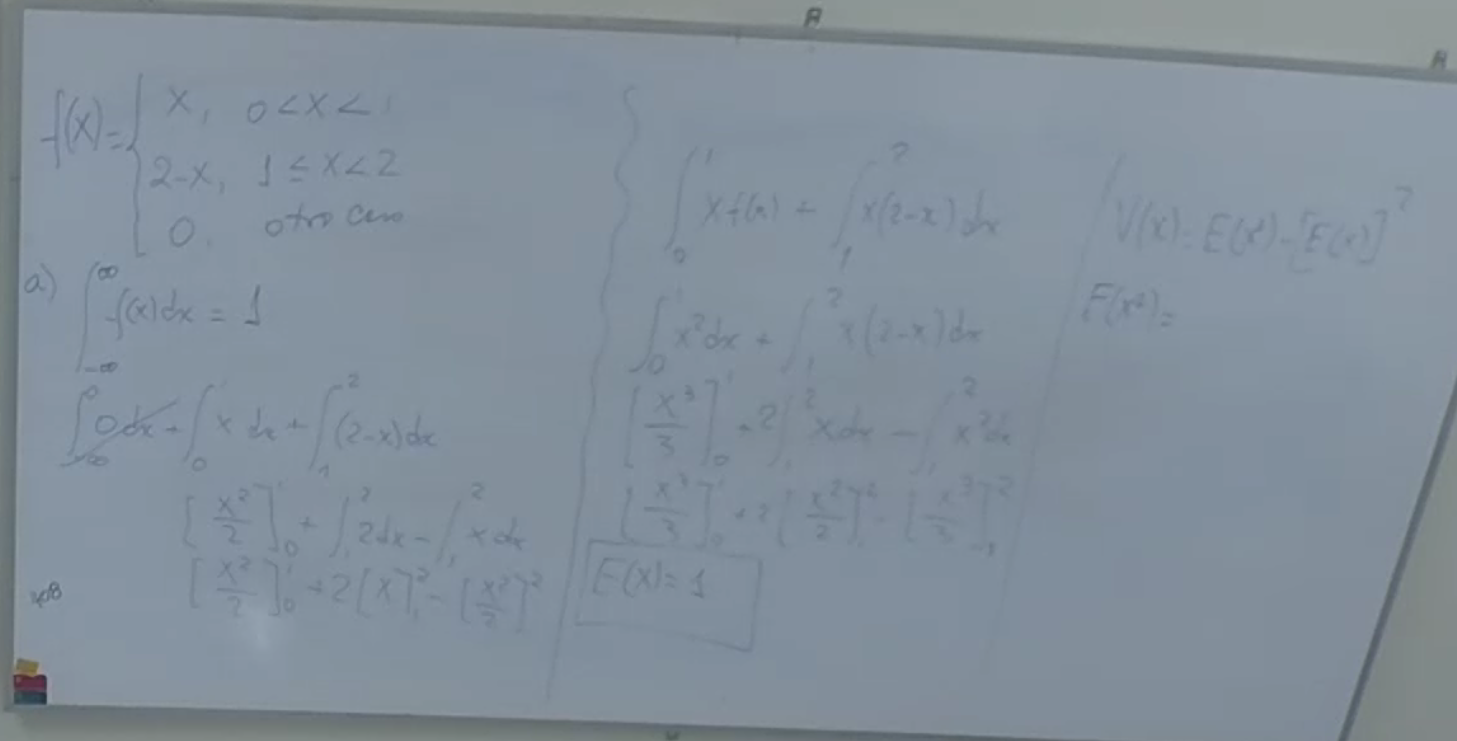 f(x)= { x, 0<x<1
2-x, 1≤x<2
0, otro caso
a) ∫_{-∞}^{∞} f(x)dx = 1
∫_{-∞}^{0} 0dx + ∫_0^1 x dx + ∫_1^2 (2-x)dx
[x²/2]_0^1 + ∫_1^2 2dx - ∫_1^2 x dx
[x²/2]_0^1 + 2[x]_1^2 - [x²/2]^2
∫_0^1 x f(x) + ∫_1^2 x(2-x)dx
∫_0^1 x²dx + ∫_1^2 x(2-x)dx
[x³/3]_0^1 + 2∫_1^2 xdx - ∫_1^2 x²dx
[x³/3]_0^1 + 2[x²/2]_1^2 - [x³/3]_1^2
E(x)= 1
V(x)= E(x²)-[E(x)]²
E(x²)=